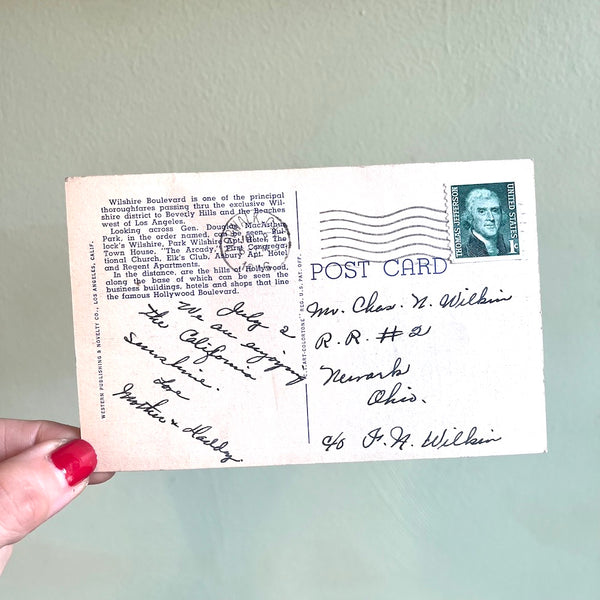 Wilshire Boulevard is one of the principal
thoroughfares passing thru the exclusive Wil-
shire district to Beverly Hills and the Beaches
west of Los Angeles.
Looking across Gen. Douglas MacArthur
Park, in the order named, can be seen, Bul-
lock's Wilshire, Park Wilshire Apt. Hotel, The
Town House, "The Arcady," First Congrega-
tional Church, Elk's Club, Asbury Apt. Hotel
and Regent Apartments.
In the distance, are the hills of Hollywood,
along the base of which can be seen the
business buildings, hotels and shops that line
the famous Hollywood Boulevard.
July 2
We are enjoying
the California
Sunshine.
Love
Mother & Daddy.
WESTERN PUBLISHING & NOVELTY CO., LOS ANGELES, CALIF.
"C.T.ART-COLORTONE" REG. U.S. PAT. OFF.
POST CARD
THOMAS JEFFERSON
UNITED STATES
1c
Mr. Chas. N. Wilkin
R. R. #2
Newark
Ohio.
c/o F. N. Wilkin